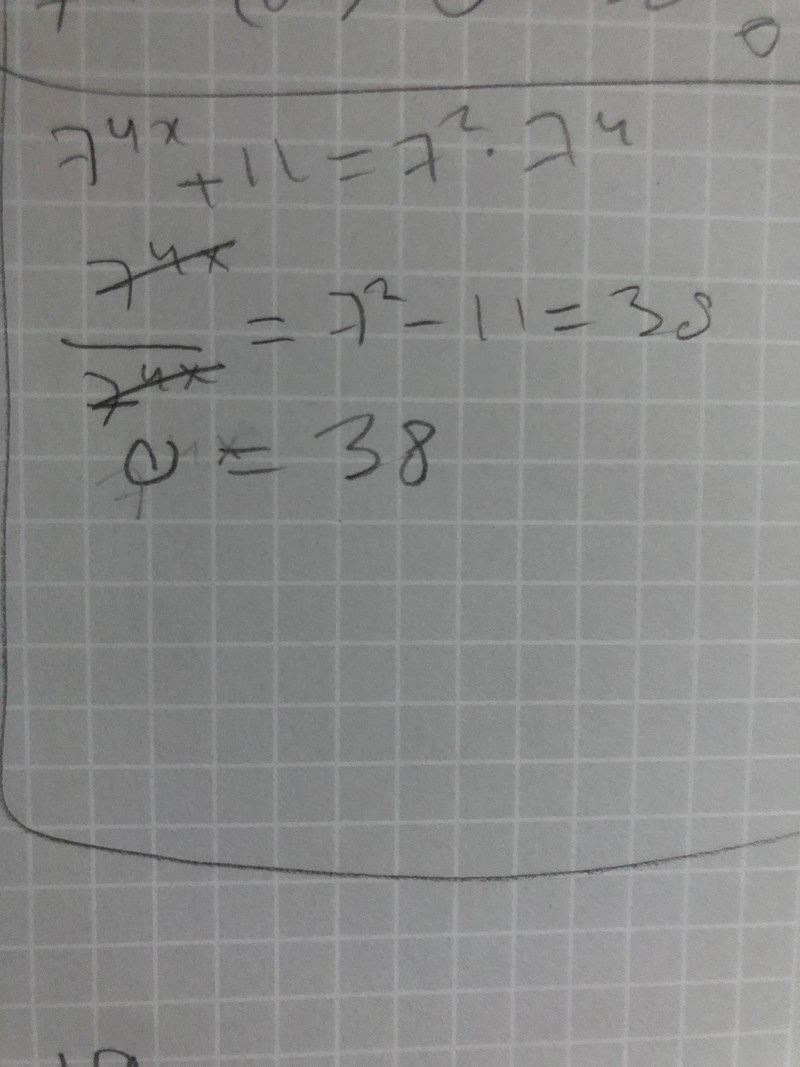 7^{4x} + 11 = 7^2 · 7^4
7^{4x} / 7^{4x} = 7^2 - 11 = 38
0 = 38